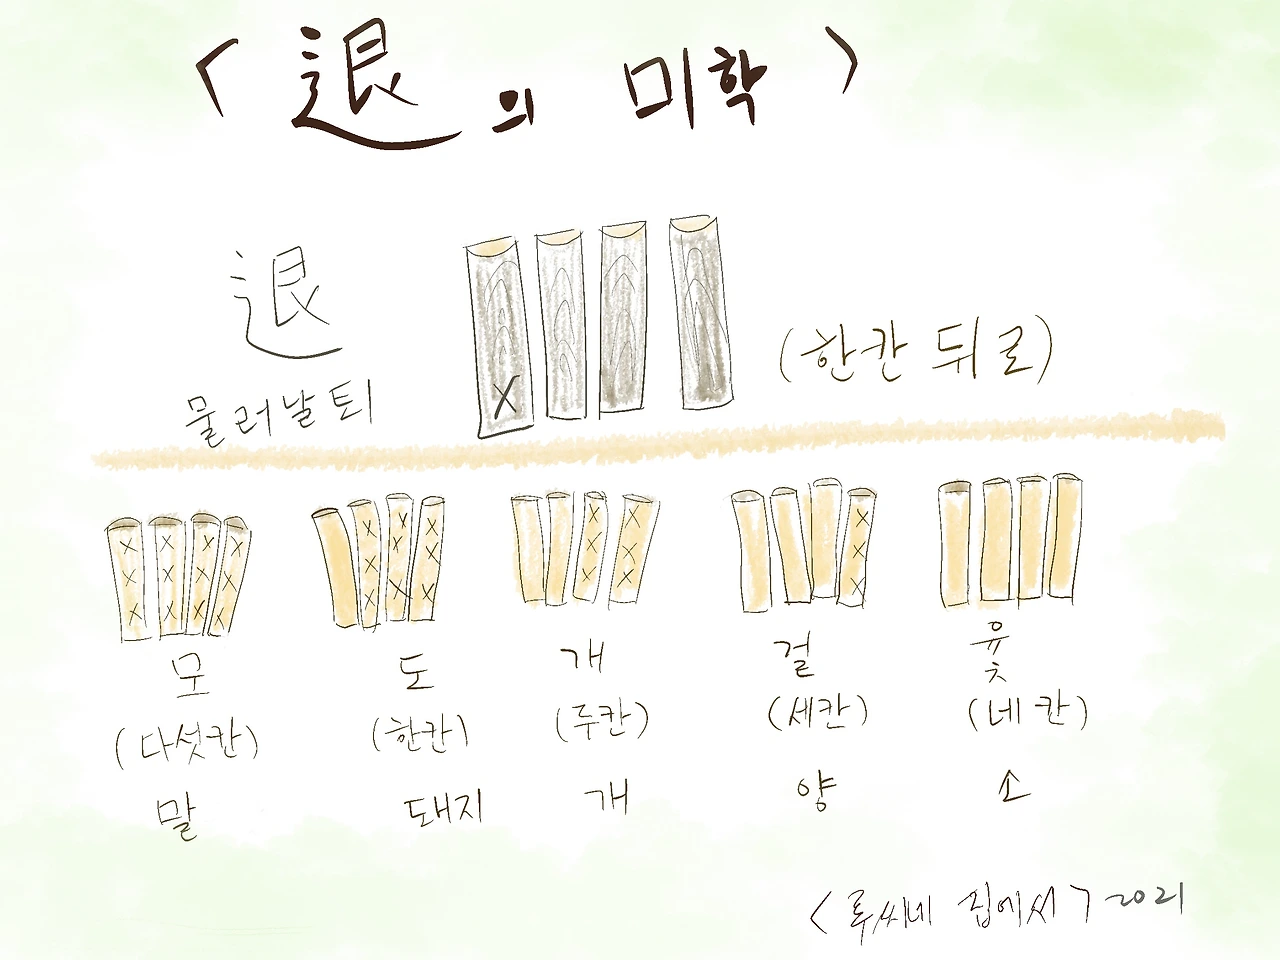 < 退의 미학 >
退
물러날 퇴
(한칸 뒤로)
모 도 개 걸 윷
(다섯칸) (한칸) (두칸) (세칸) (네칸)
말 돼지 개 양 소
<루씨네 집에서> 2021